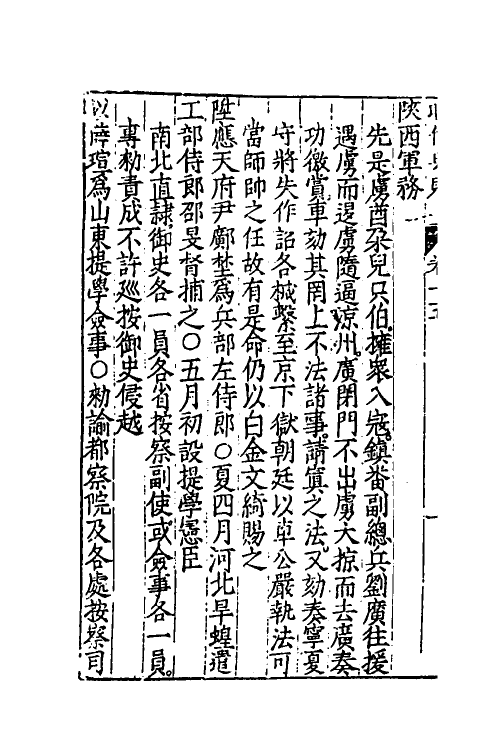 陝西軍務
先是虜酋朶兒只伯擁衆入寇鎮番副總兵劉廣往援
遇虜而退虜隨逼涼州廣閉門不出虜大掠而去廣奏
功徼賞車劾其罔上不法諸事請寘之法又劾奏寧夏
守將失作詔各械繫至京下獄朝廷以卓公嚴執法可
當師帥之任故有是命仍以白金文綺賜之
陞應天府尹鄺埜爲兵部左侍郎○夏四月河北旱蝗遣
工部侍郎邵旻督捕之○五月初設提學憲臣
南北直隷御史各一員各省按察副使或僉事各一員
專勑責成不許廵按御史侵越
以薛瑄爲山東提學僉事○勑諭都察院及各處按察司